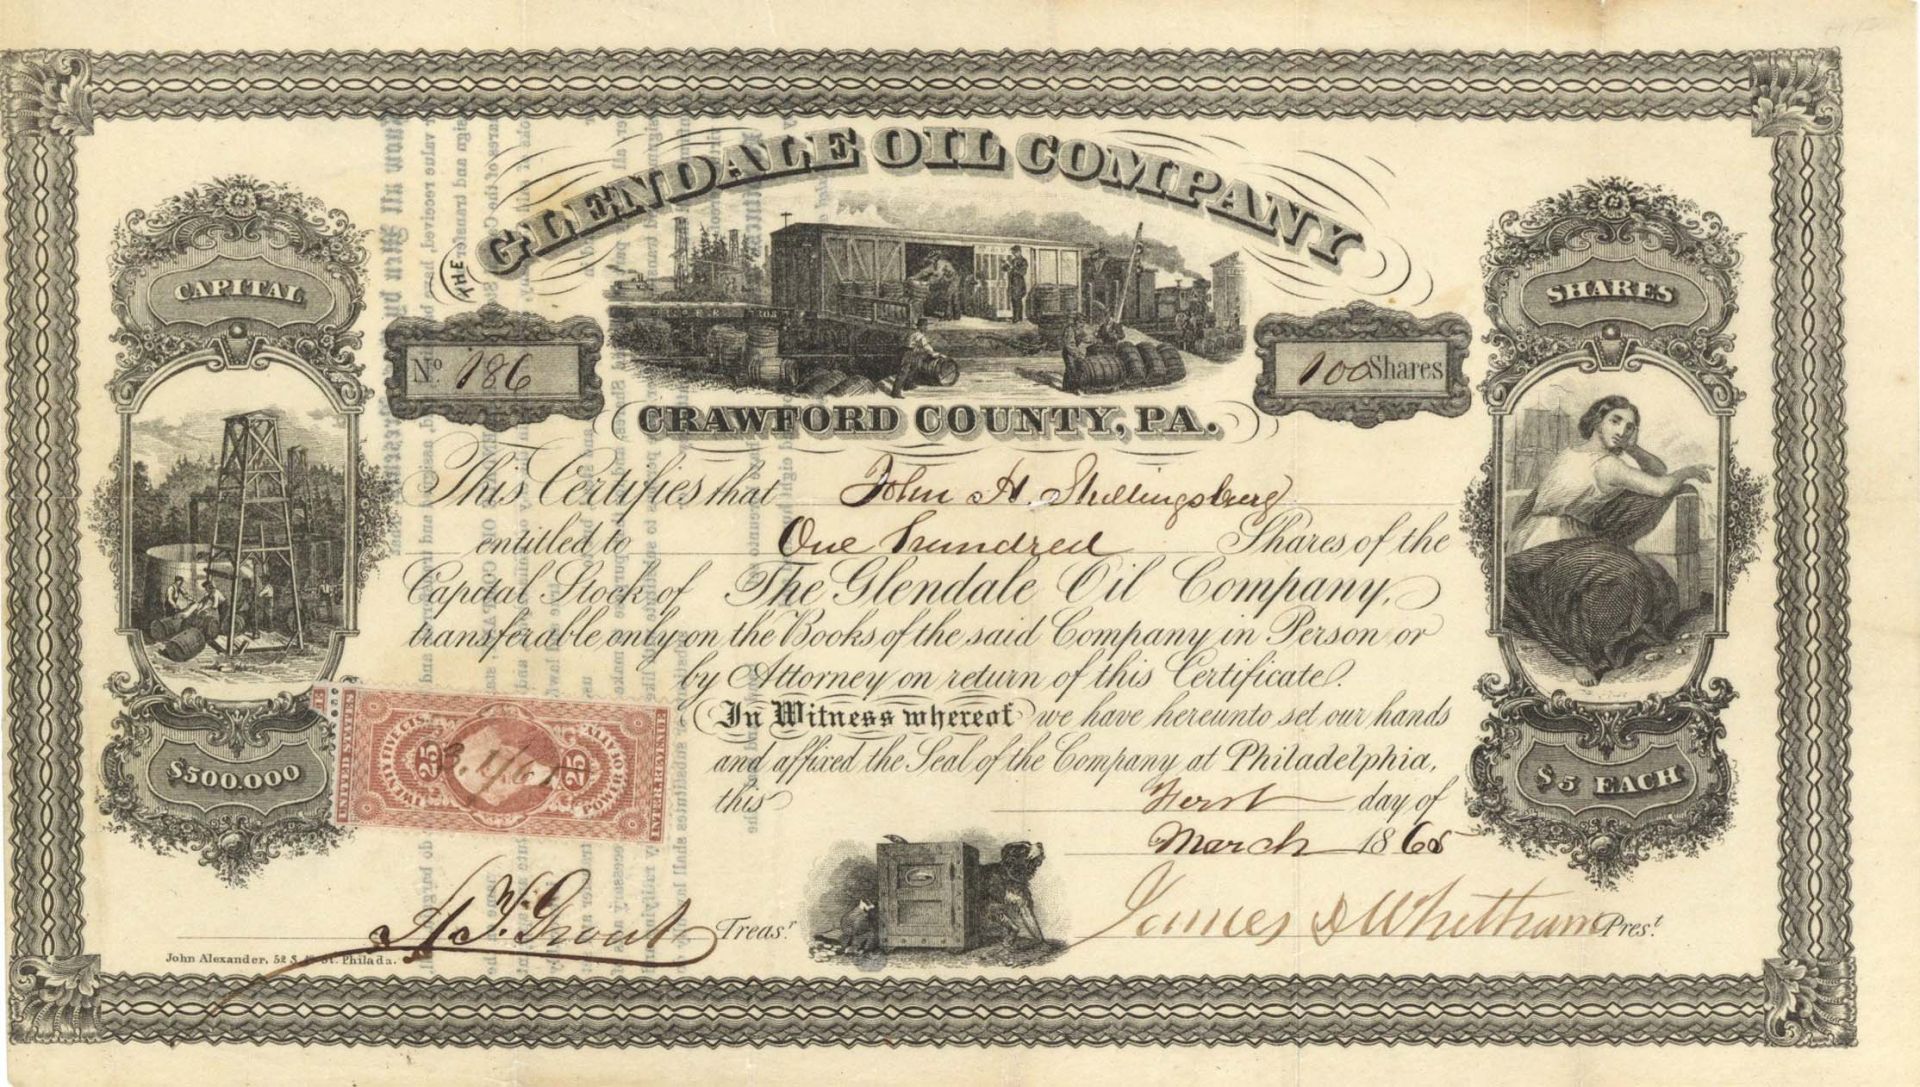 THE GLENDALE OIL COMPANY
CAPITAL
SHARES
No. 186
100 Shares
CRAWFORD COUNTY, PA.
This Certifies that John H. Shillingsburg
entitled to One hundred Shares of the
Capital Stock of The Glendale Oil Company,
transferable only on the Books of the said Company in Person or
by Attorney on return of this Certificate.
In Witness whereof we have hereunto set our hands
and affixed the Seal of the Company at Philadelphia,
this First day of
March 1865
$500.000
$5 EACH
UNITED STATES
INTER. REVENUE
25
25
POWER OF
Treasr.
James D Whetham Prest.
John Alexander, 52 S. St. Philada.